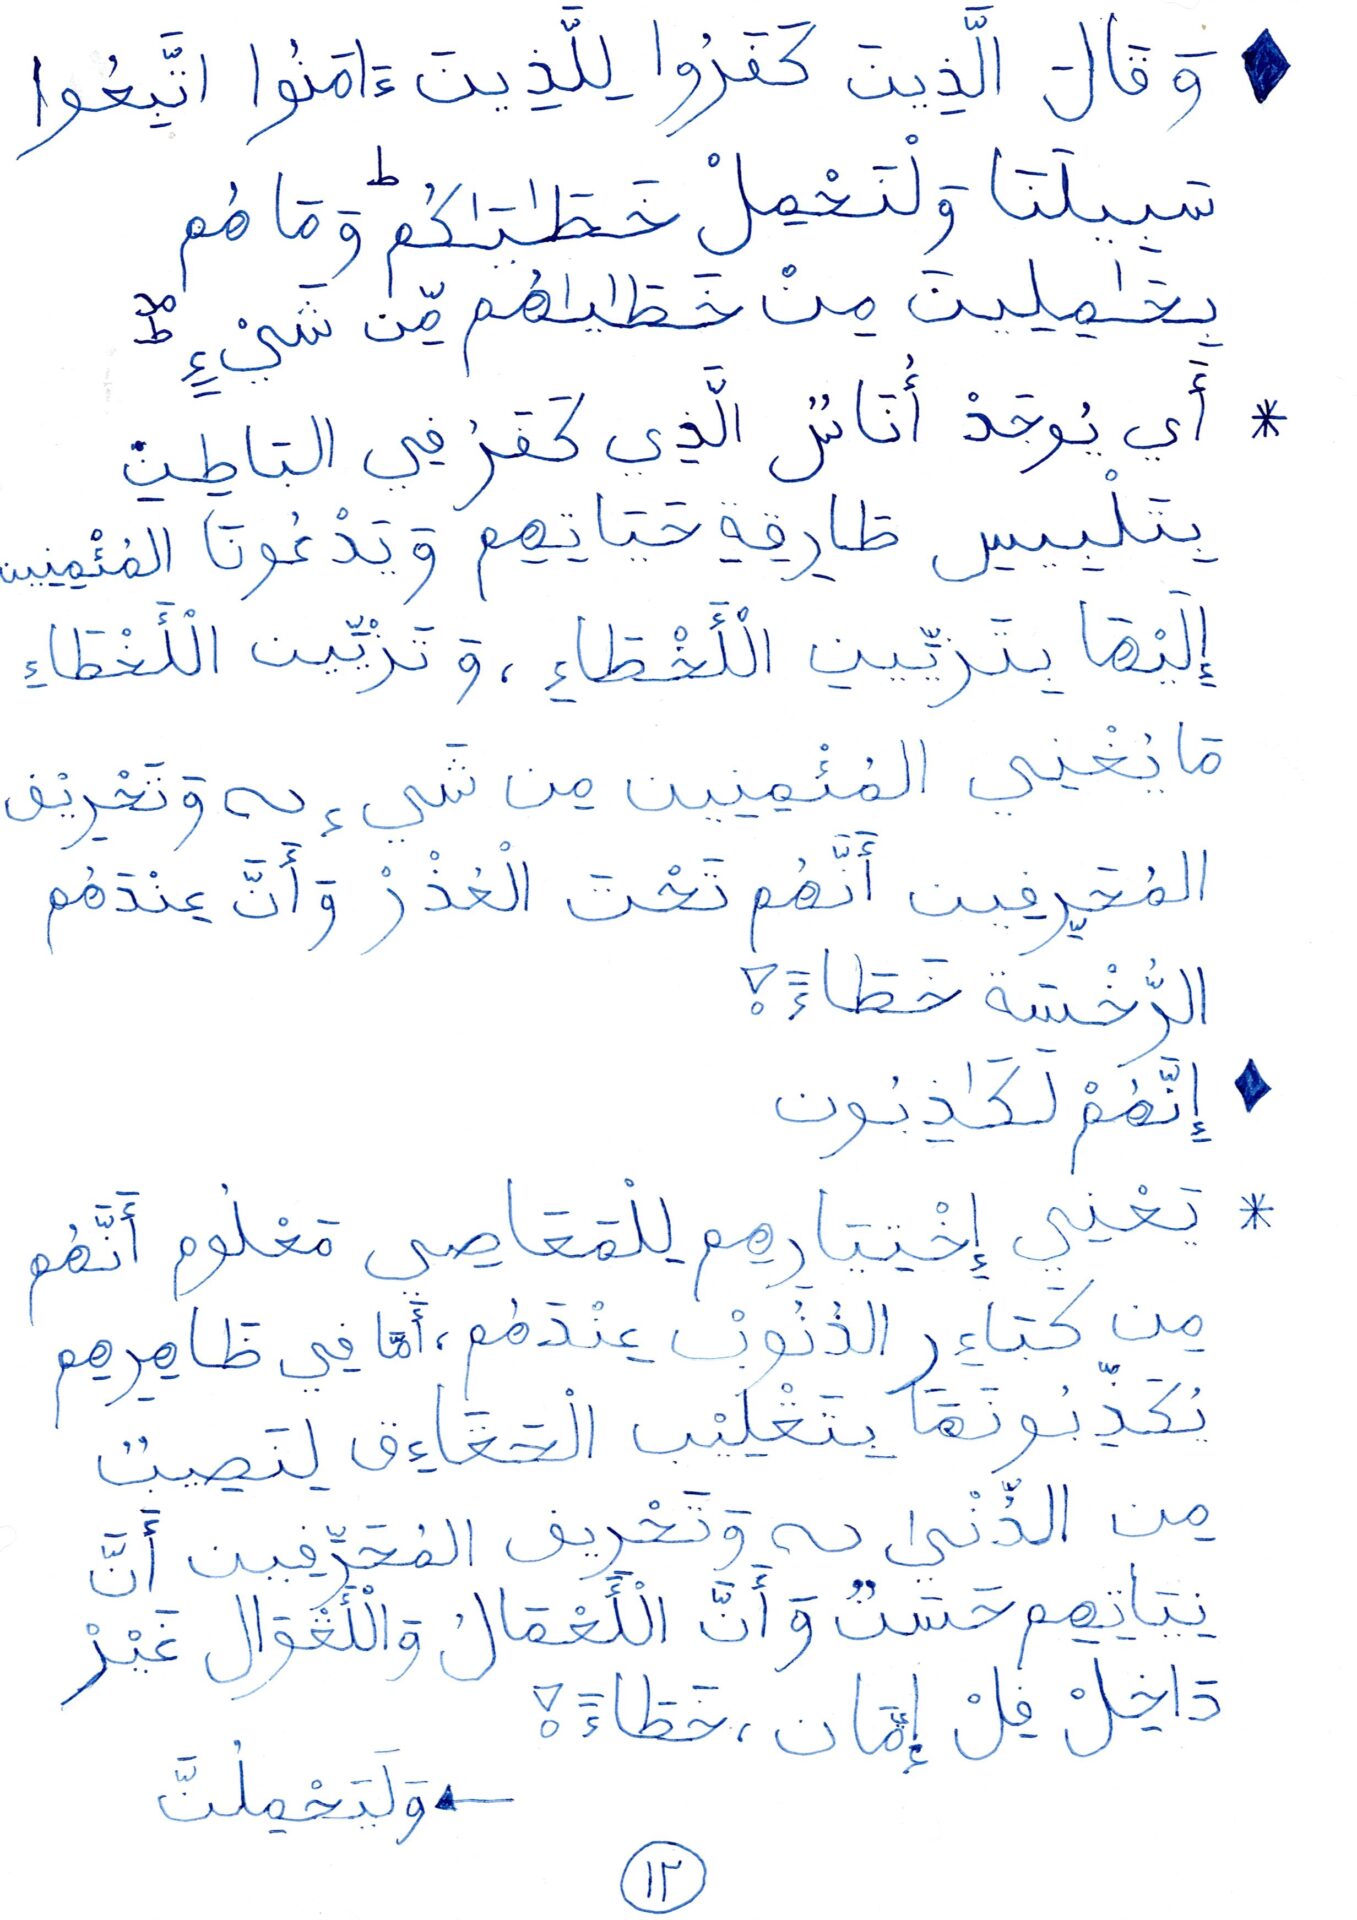 وَقَالَ الَّذِينَ كَفَرُوا لِلَّذِينَ ءَامَنُوا اتَّبِعُوا
سَبِيلَنَا وَلْنَحْمِلْ خَطَٰيَٰكُم ۖ وَمَا هُم
بِحَٰمِلِينَ مِنْ خَطَٰيَٰهُم مِّن شَيْءٍ
* أَي يُوجَدْ أُنَاسٌ الَّذِي كَفَرُ فِي البَاطِن
بِتَلْبِيسِ طَارِقِةِ حَيَاتِهِم وَيَدْعُونَا المُئْمِنِين
إِلَيْهَا بِتَزيِّينِ اللْأَخْطَاءِ، وَتَزْيِّين اللْأَخْطَاءِ
مَا يُغْنِي المُئْمِنِين مِن شَيءٍ به وَتَحْرِيْف
المُحَرِّفِين أَنَّهُم تَحْتَ الْعُذْرْ وَأَنَّ عِنْدَهُم
الرُّخْسَة خَطَاءً؟
إِنَّهُمْ لَكَٰذِبُون
* يَعْنِي إِخْتِيَارِهِم لِلْمَعَاصِي مَعْلُوم أَنَّهُم
مِن كَبَاءِر الذُنُوبْ عِنْدَهُم، أَمَّا فِي ظَاهِرِهِم
يُكَذِّبُونَهَا بِتَقْلِيْب الْحَقَاءِق لِنَصِيبٌ
مِن الدُّنْيٰ به وَتَحْرِيف المُحَرِّفِين أَنَّ
نِيَّاتِهِم حَسَنٌ وَأَنَّ اللْأَعْمَالُ وَاللْأَقْوَالِ غَيْرْ
دَاخِلْ فِلْ إِمَّان، خَطَاءً؟
وَلَيَحْمِلُنَّ
١٢